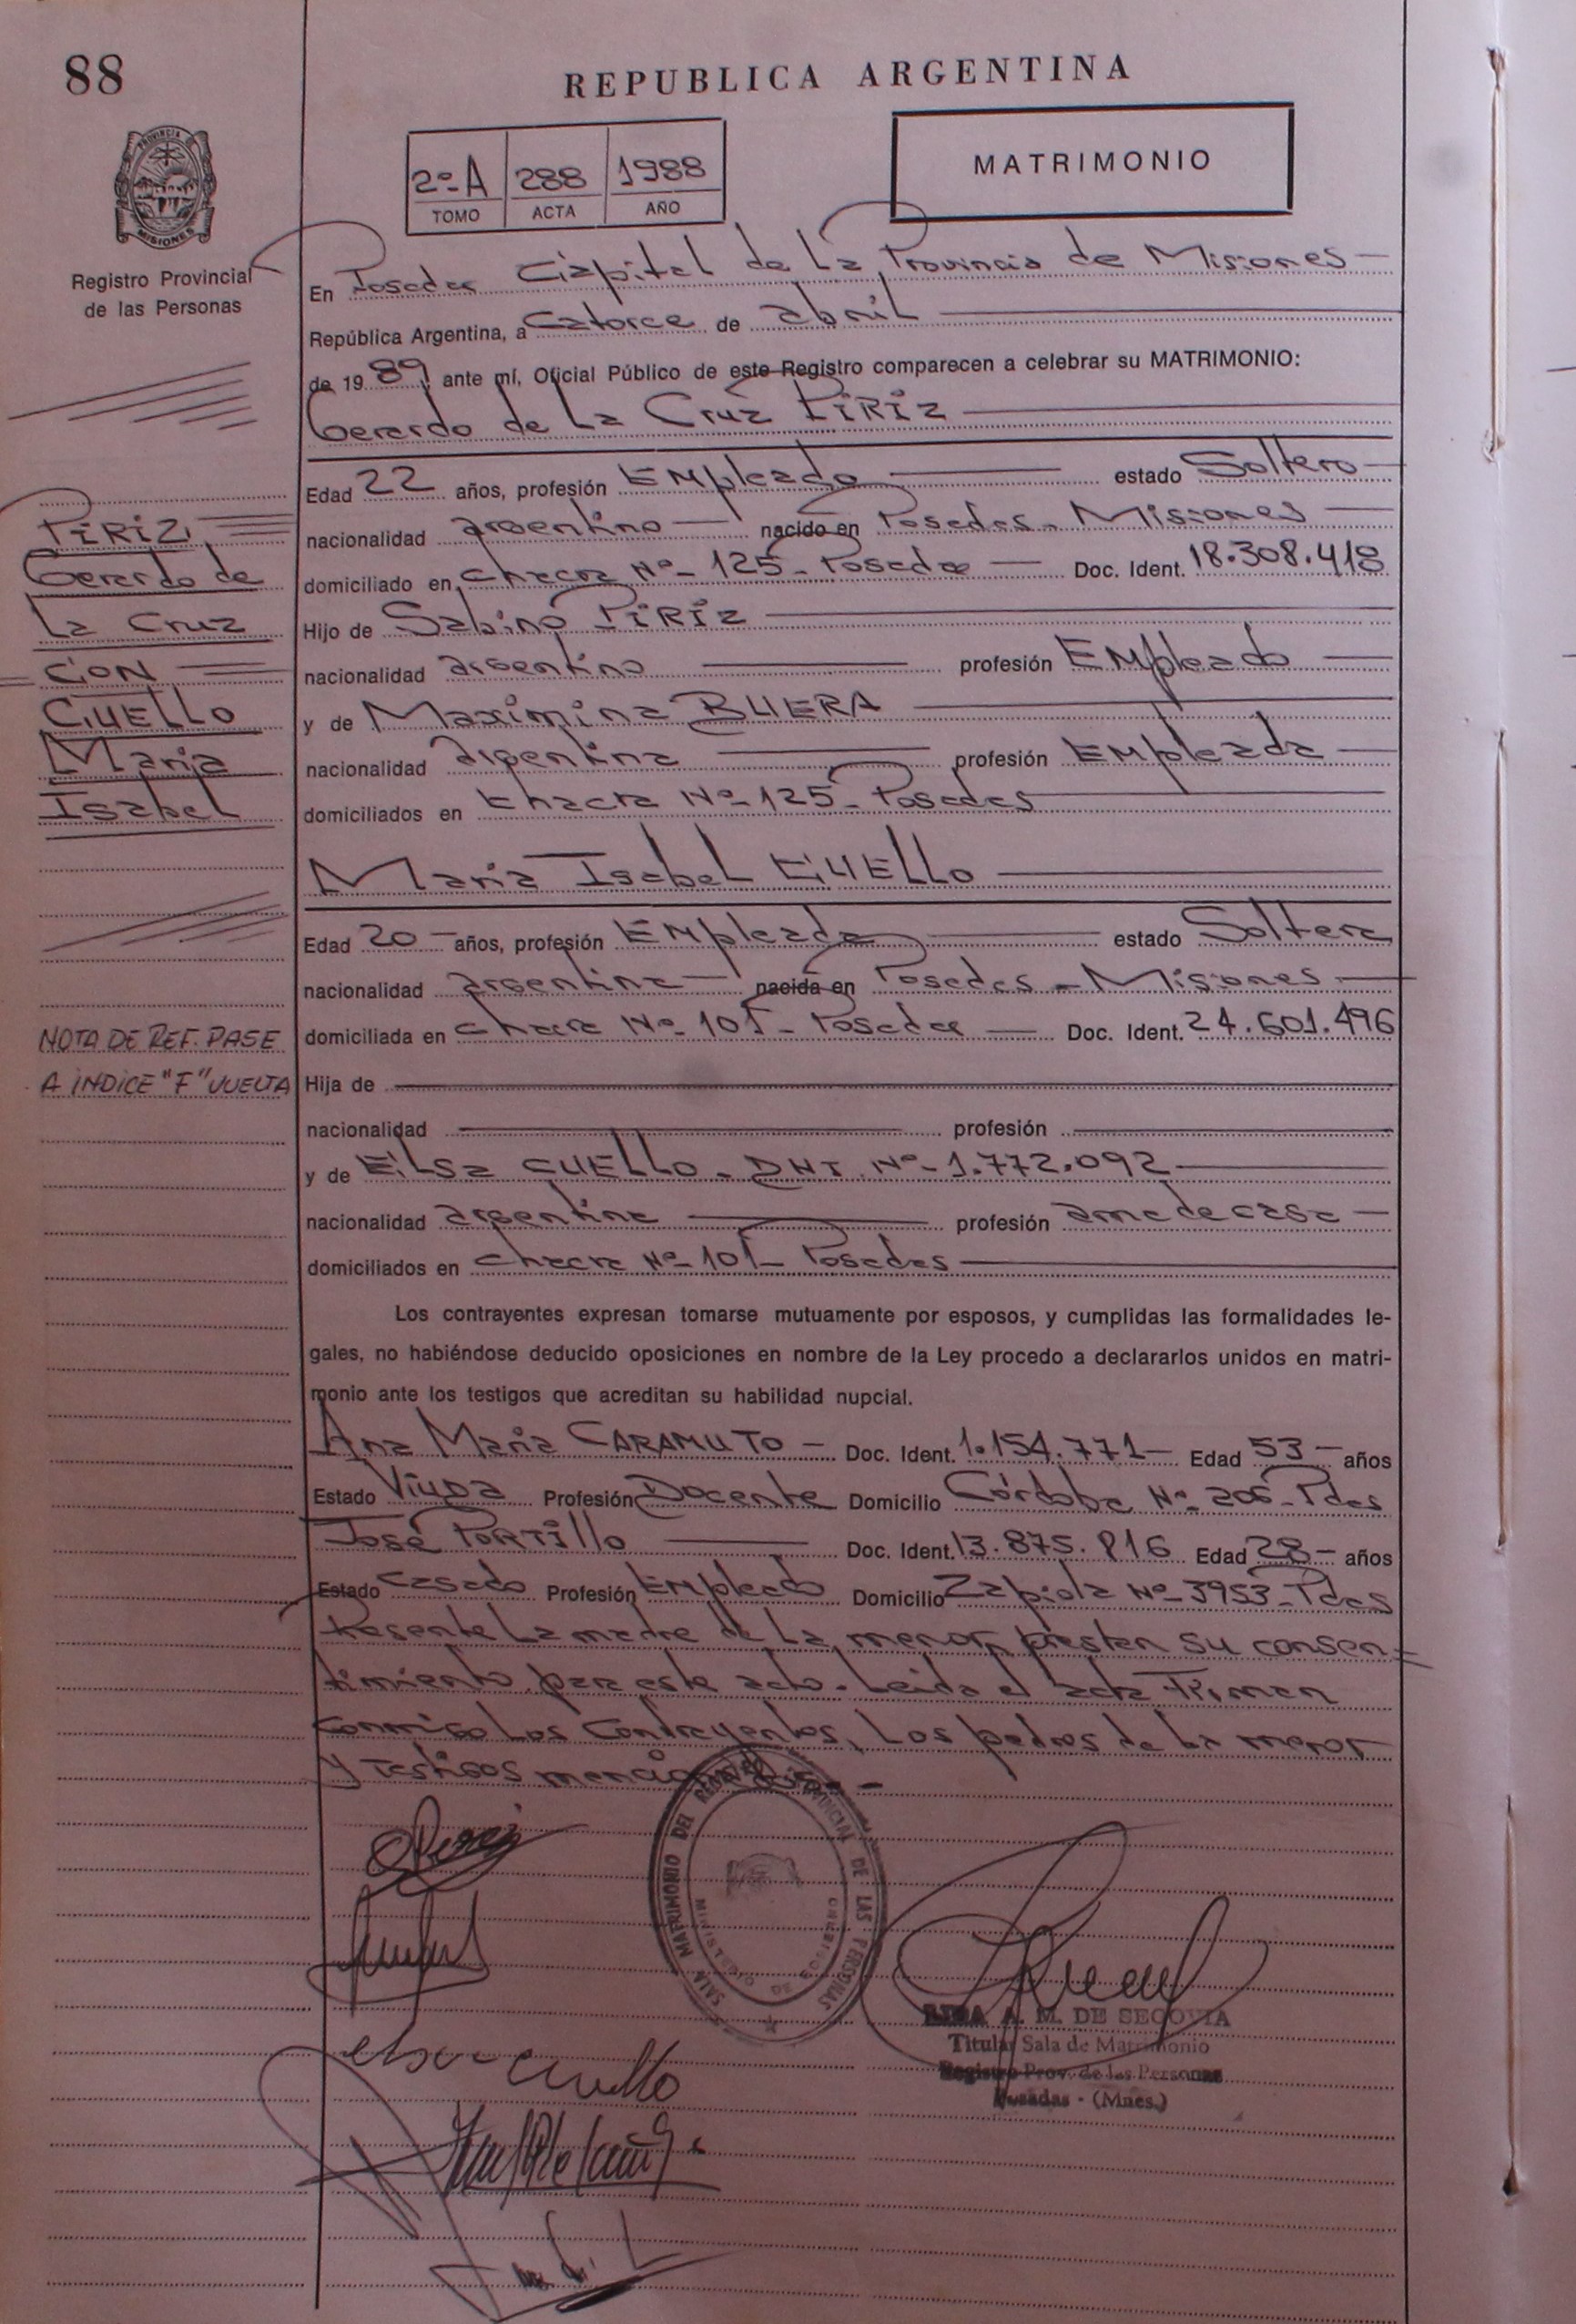 88
REPUBLICA ARGENTINA
2º-A 288 1988
TOMO ACTA AÑO
MATRIMONIO
PROVINCIA
MISIONES
Registro Provincial
de las Personas
En Posadas Capital de La Provincia de Misiones
República Argentina, a catorce de abril
de 19 89 ante mí, Oficial Público de este Registro comparecen a celebrar su MATRIMONIO:
Gerardo de La Cruz PIRIZ
Edad 22 años, profesión Empleado estado Soltero
nacionalidad argentino nacido en Posadas - Misiones
domiciliado en chacra Nº- 125 - Posadas Doc. Ident. 18.308.418
Hijo de Sabino PIRIZ
nacionalidad argentino profesión Empleado
y de Maximina BUERA
nacionalidad argentina profesión Empleada
domiciliados en chacra Nº- 125 - Posadas
PIRIZ
Gerardo de
La Cruz
CON
CUELLO
Maria
Isabel
Maria Isabel CUELLO
Edad 20 años, profesión Empleada estado Soltera
nacionalidad argentina nacida en Posadas - Misiones
domiciliada en chacra Nº- 101 - Posadas Doc. Ident. 24.601.496
NOTA DE REF. PASE
A INDICE "F" VUELTA
Hija de
nacionalidad profesión
y de Elsa CUELLO - DNI Nº- 1.772.092
nacionalidad argentina profesión ama de casa
domiciliados en chacra Nº- 101 - Posadas
Los contrayentes expresan tomarse mutuamente por esposos, y cumplidas las formalidades le-
gales, no habiéndose deducido oposiciones en nombre de la Ley procedo a declararlos unidos en matri-
monio ante los testigos que acreditan su habilidad nupcial.
Ana Maria CARAMUTO - Doc. Ident. 1.154.771 - Edad 53 - años
Estado Viuda Profesión Docente Domicilio Córdoba Nº- 206 - Pdas
José PORTILLO Doc. Ident. 13.875.816 Edad 28 - años
Estado casado Profesión Empleado Domicilio Zapiola Nº- 3953 - Pdas
Presente La madre de La menor, prestan su consen=
timiento para este acto - Leida el acta Firman
conmigo Los Contrayentes, Los padres de La menor
y testigos mencionados - -
SALA MATRIMONIO DEL REGISTRO PROVINCIAL DE LAS PERSONAS
MINISTERIO DE GOBIERNO
Elsa Cuello
A. M. DE SEGOVIA
Titular Sala de Matrimonio
Registro Prov. de las Personas
Posadas - (Mnes.)